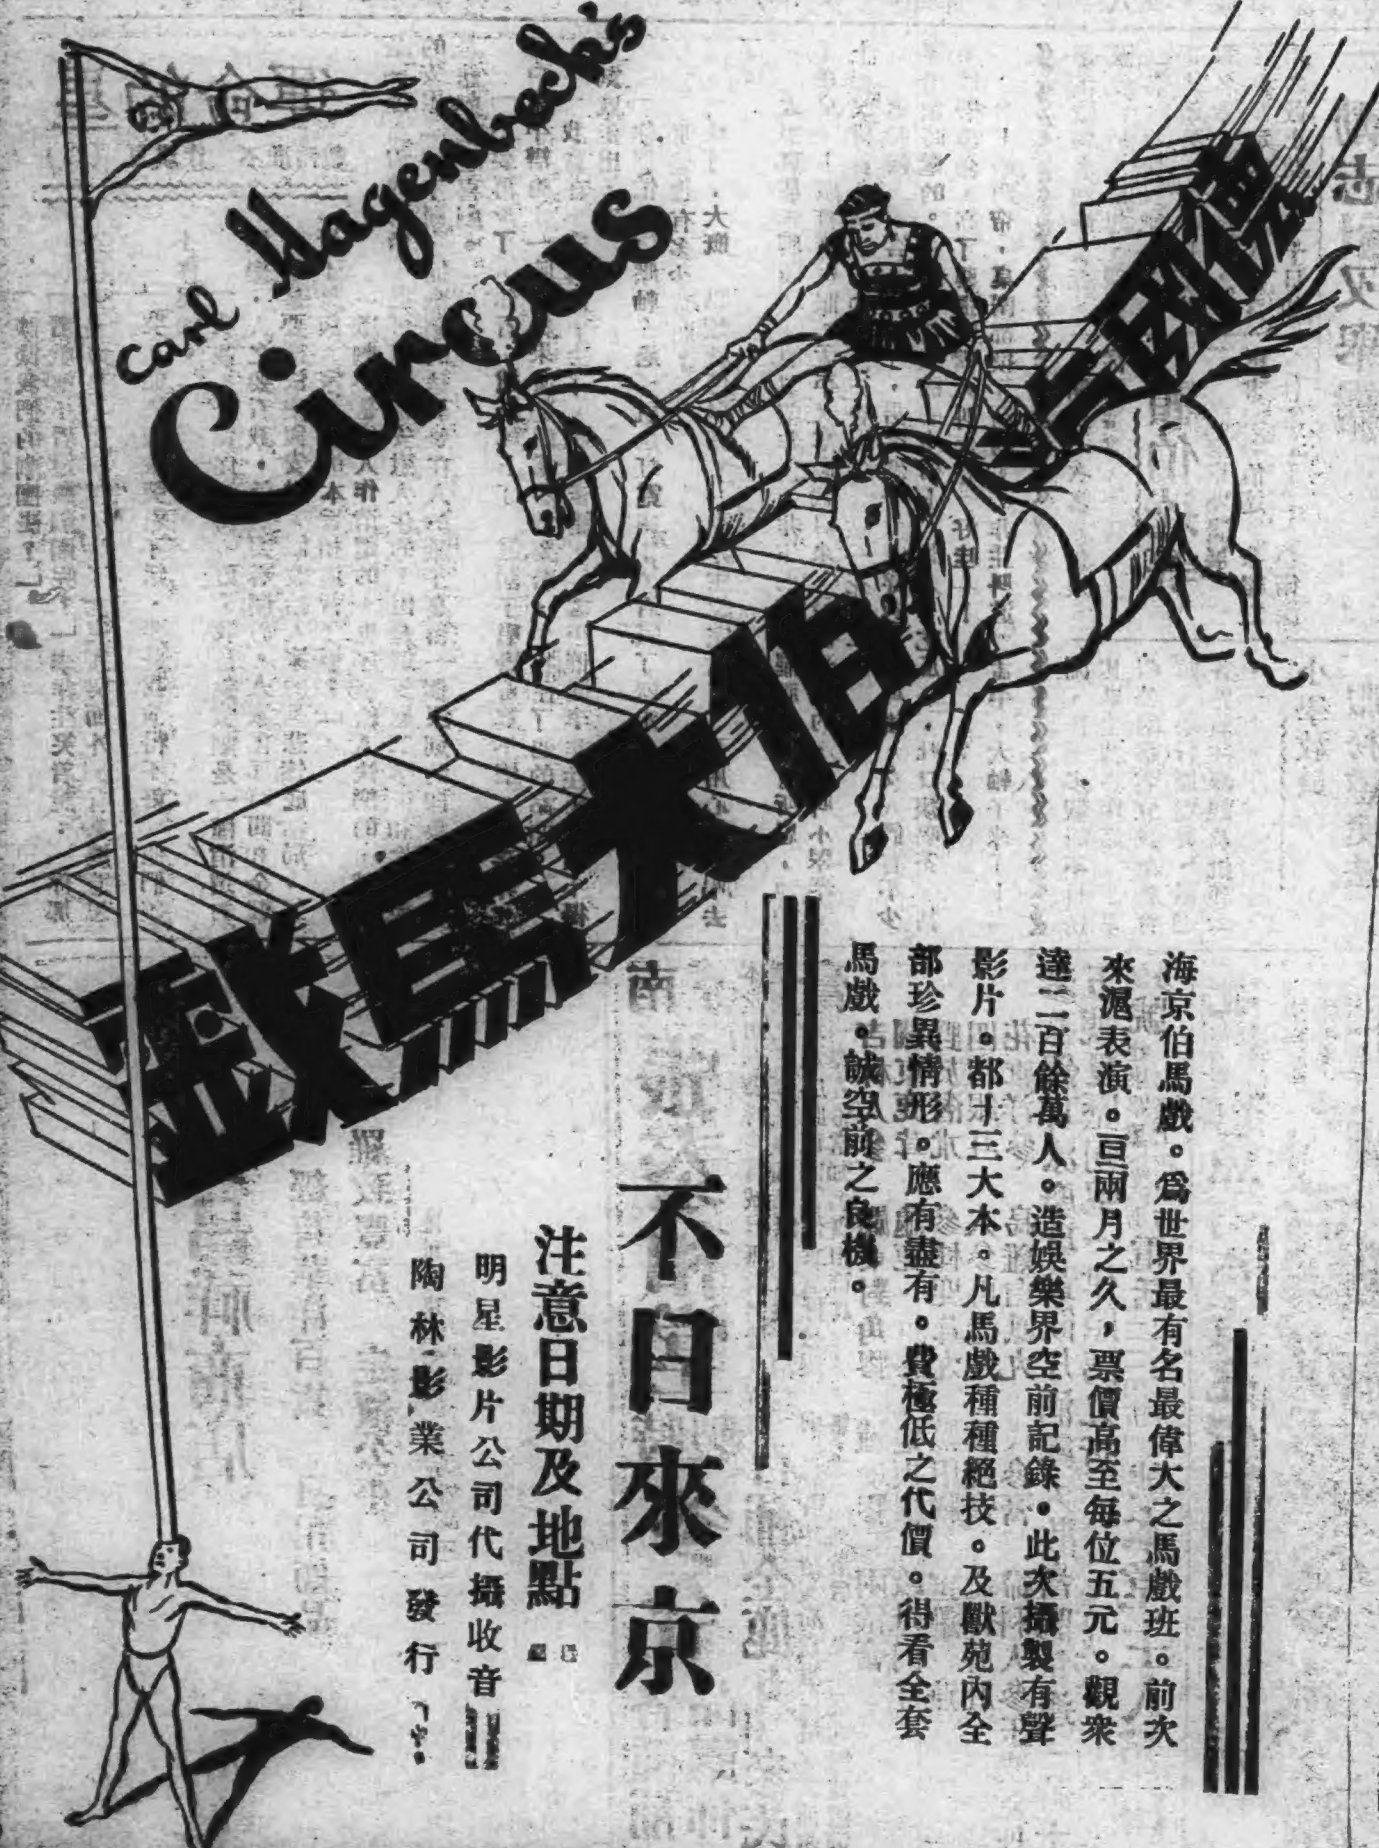 Carl Hagenbeck's
Circus
德國
伯大馬戲
海京伯馬戲。爲世界最有名最偉大之馬戲班。前次
來滬表演。亘兩月之久，票價高至每位五元。觀衆
達二百餘萬人。造娛樂界空前記錄。此次攝製有聲
影片。都十三大本。凡馬戲種種絕技。及獸苑內全
部珍異情形。應有盡有。費極低之代價。得看全套
馬戲。誠空前之良機。
不日來京
注意日期及地點
明星影片公司代攝收音
陶林影業公司發行